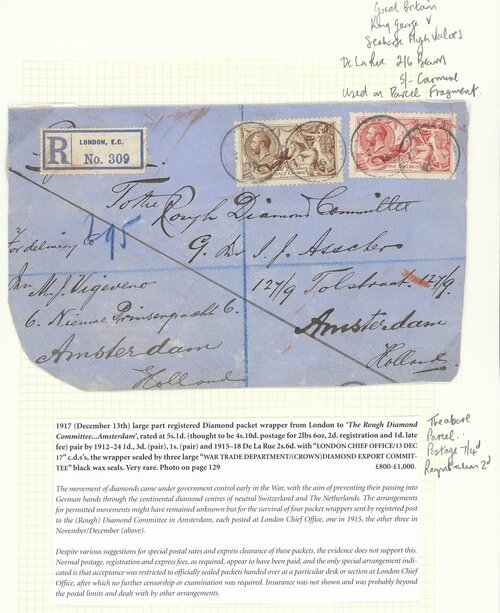 Great Britain
King George V
Seahorse High Values
De La Rue 2/6 Brown
5/- Carmine
Used on Parcel Fragment.
R
LONDON, E.C.
No. 309
HALF CROWN
FIVE SHILLINGS
To the Rough Diamond Committee
£95
For delivery to
c/o Mr I. J. Asscher
Mr M. J. Vigeveno
127/9 Tolstraat 127/9
6. Nieuwe Prinsengracht 6.
Amsterdam
Amsterdam
Holland
Holland
1917 (December 13th) large part registered Diamond packet wrapper from London to 'The Rough Diamond
Committee...Amsterdam', rated at 5s.1d. (thought to be 4s.10d. postage for 2lbs 6oz, 2d. registration and 1d. late
fee) pair by 1912–24 1d., 3d. (pair), 1s. (pair) and 1915–18 De La Rue 2s.6d. with "LONDON CHIEF OFFICE/13 DEC
17" c.d.s's, the wrapper sealed by three large "WAR TRADE DEPARTMENT/(CROWN)DIAMOND EXPORT COMMIT-
TEE" black wax seals. Very rare. Photo on page 129
£800-£1,000.
The above
Parcel:
Postage 7/4d
Registration 2d
The movement of diamonds came under government control early in the War, with the aim of preventing their passing into
German hands through the continental diamond centres of neutral Switzerland and The Netherlands. The arrangements
for permitted movements might have remained unknown but for the survival of four packet wrappers sent by registered post
to the (Rough) Diamond Committee in Amsterdam, each posted at London Chief Office, one in 1915, the other three in
November/December (above).
Despite various suggestions for special postal rates and express clearance of these packets, the evidence does not support this.
Normal postage, registration and express fees, as required, appear to have been paid, and the only special arrangement indi-
cated is that acceptance was restricted to officially sealed packets handed over at a particular desk or section at London Chief
Office, after which no further censorship or examination was required. Insurance was not shown and was probably beyond
the postal limits and dealt with by other arrangements.